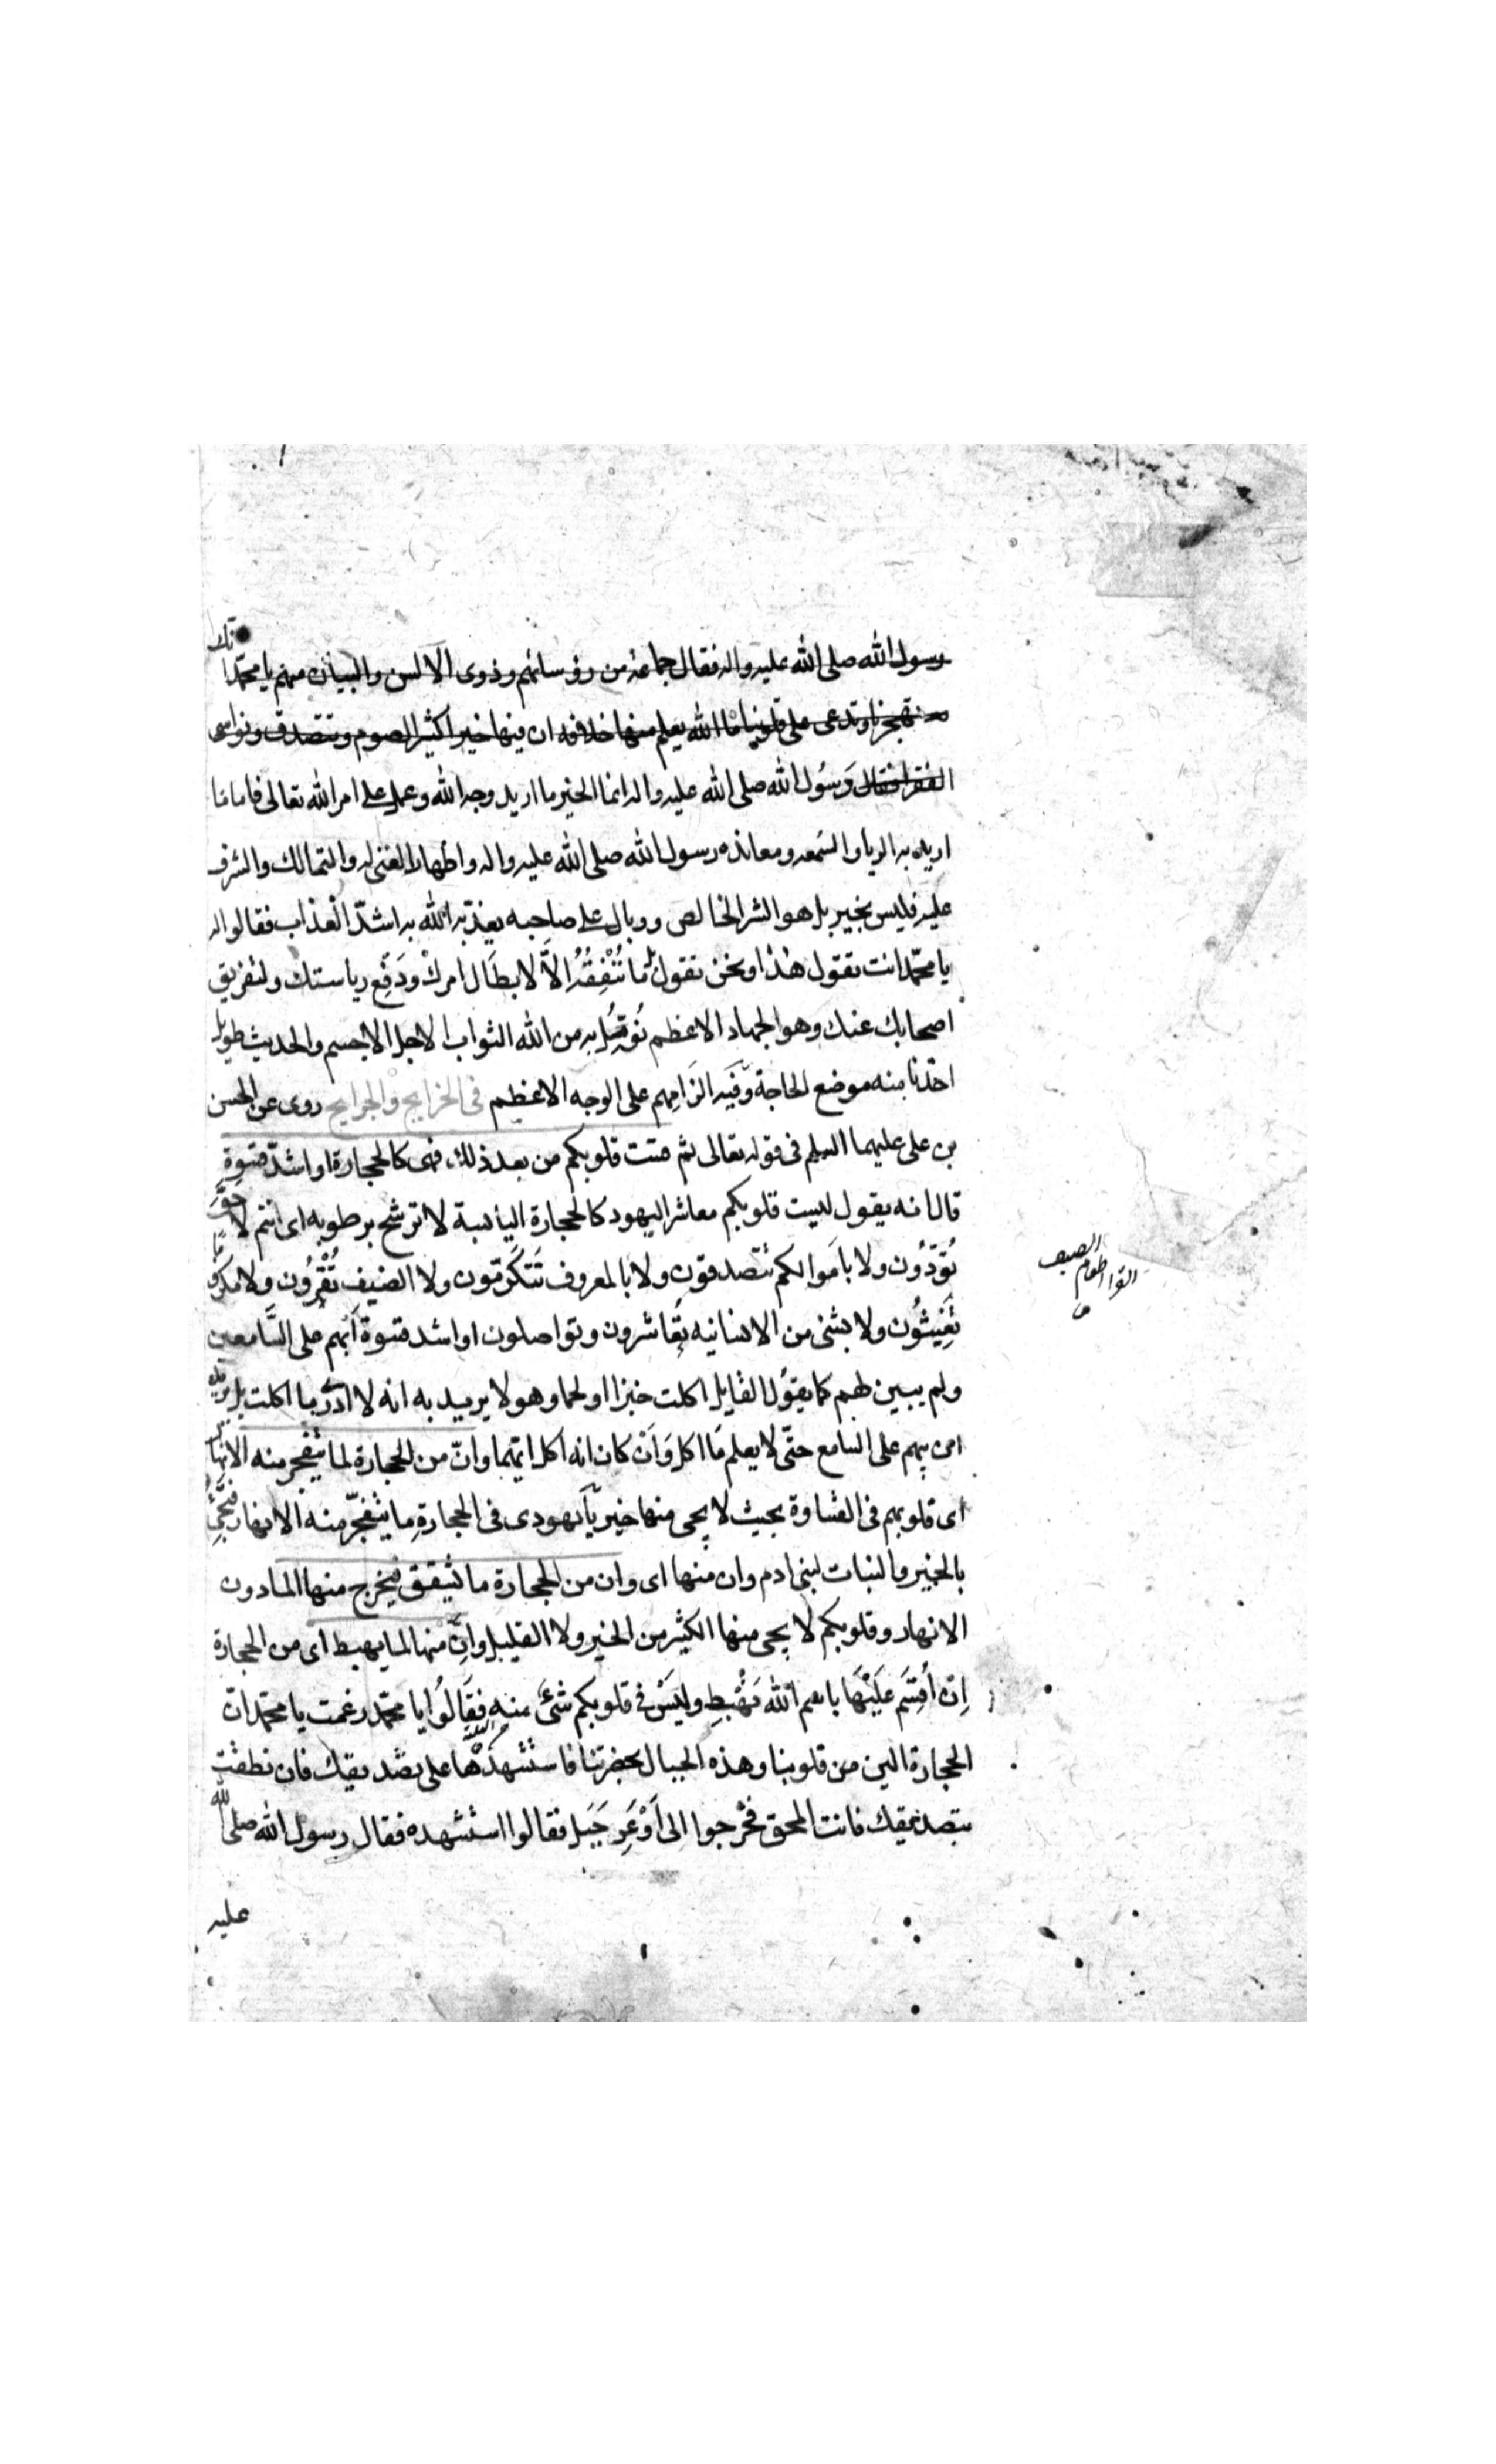 رسول الله صلى الله عليه واله فقال جماعة من رؤسائهم وذوى الالسن والبيان منهم يا محمد انك
تهجونا وتدعى على قلوبنا ما الله يعلم منها خلافه ان فيها خيرا كثيرا نصوم ونتصدق ونواسى
الفقرا فقال رسول الله صلى الله عليه واله انما الخير ما اريد وجه الله وعمل على امر الله تعالى فاما ما
اريد به الريا والسمعه ومعانده رسول الله صلى الله عليه واله واظهار الغنى له والتمالك والشرف
عليه فليس بخير بل هو الشر الخالص ووبال على صاحبه يعذبه الله به اشدّ العذاب فقالوا له
يا محمّد انت تقول هذا ونحن نقول بل ما نُنْفِقُهُ اِلاّ لابطَال امرك ودَفْعِ رياستك ولتفريق
اصحابك عنك وهو الجهاد الاعظم نُؤمّل به من الله الثواب الاجل الاجسم والحديث طويل
اخذنا منه موضع الحاجة وفيه الزامهم على الوجه الاعظم فى الخرايج والجرايح روى عن الحسين
بن على عليهما السلم فى قوله تعالى ثم قست قلوبكم من بعد ذلك فهى كالحجارة او اشدّ قسوة
قال انه يقول يبست قلوبكم معاشر اليهود كالحجارة اليابسة لا ترشح برطوبه اى انتم لا حق
تُؤدّون ولا باموالكم تتصدقون ولا بالمعروف تتكرّمون ولا الضيف تُقْرُون ولا مكروبا
تُغيثُون ولا بشئ من الانسانيه تُعاشرون وتواصلون او اشد قسوة اَبْهم على السَّامعين
ولم يبين لهم كما يقولُ القايل اكلت خبزا او لحما وهو لا يريد به انه لا ادرى ما اكلت بل يريد
ان يبهم على السامع حتّى لا يعلم مَا اكل وَاَنْ كان انه اكل ايّهما وانّ من الحجارة لما يتفجر منه الانهار
اى قلوبهم فى القساوة بحيث لا يجئ منها خير يا يهودى فى الحجارةِ ما يتفجّر منه الانهار فتجئ
بالخير والنبات لبنى ادم وان منها اى وان من الحجارة ما يشقق فيخرج منها الما دون
الانهار وقلوبكم لا يجى منها الكثير من الخير ولا القليل وانّ منها لما يهبط اى من الحجارة
اِن اُقسِم عَلَيْهَا باسم الله تَهْبِط وليَسْ فى قلوبكم شئ منه فقَالُوا يا محمّد زعمت يا محمّد ان
الحجارة الين من قلوبنا وهذه الجبال بحضرتنا فاستشهدهَا على تصديقك فان نطقت
بتصديقك فانت المحق فخرجوا الى اَوْعَرِ جَبَل فقالوا استشهده فقال رسول الله صلى الله
عليه
القرا اطعام
الضيف